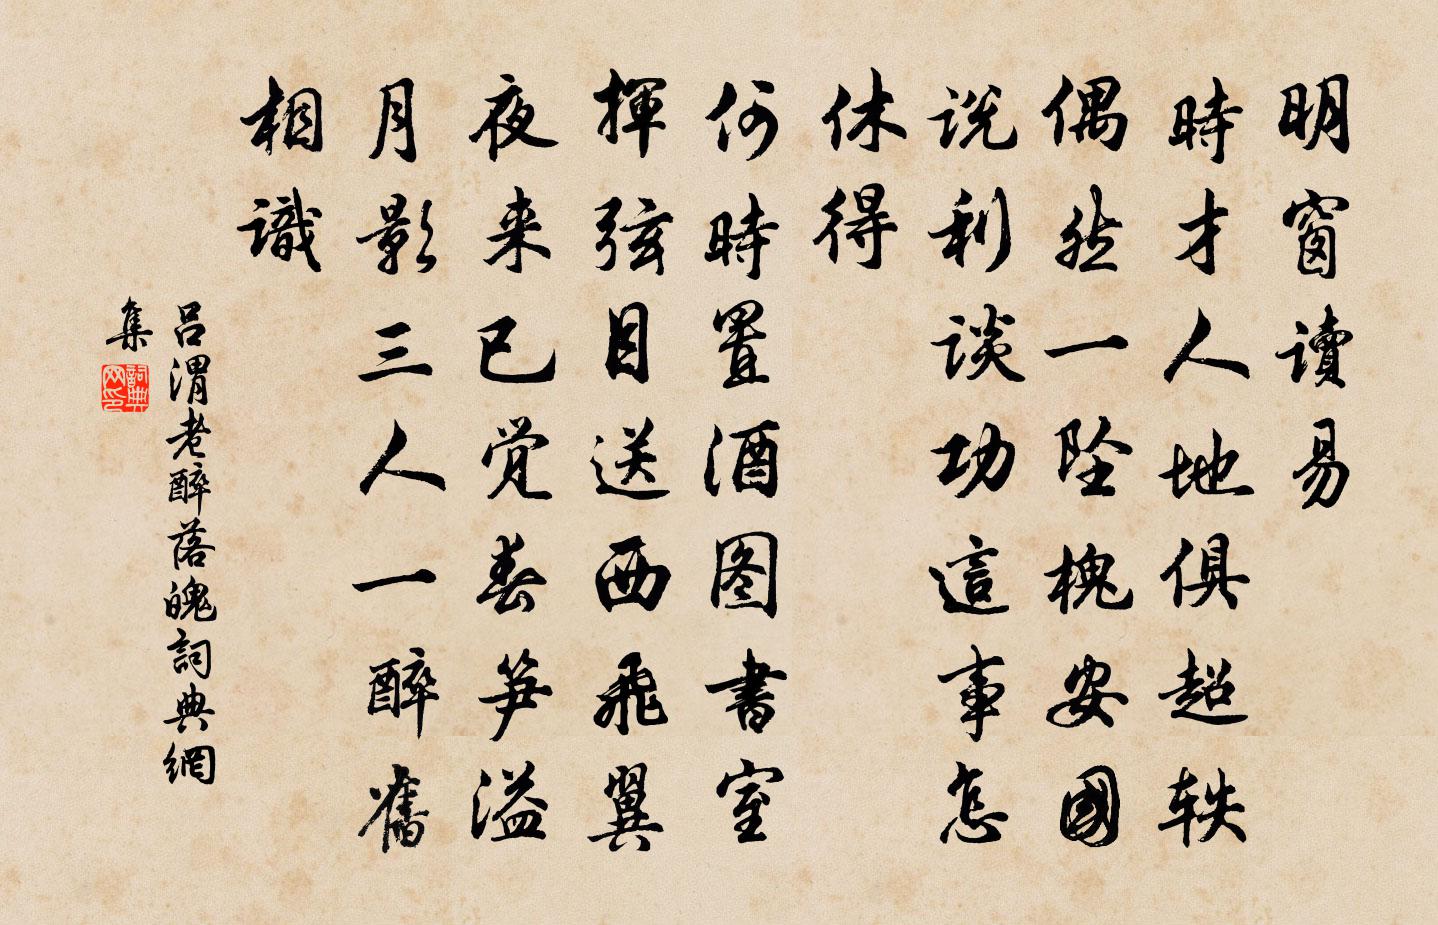 明窗讀易
時才人地俱超軼
偶然一坠槐安國
说利談功這事怎
休得
何時置酒图書室
揮弦目送西飛翼
夜来已觉春笋溢
月影三人一醉舊
相識
吕渭老醉落魄詞典網
集
詞典網印